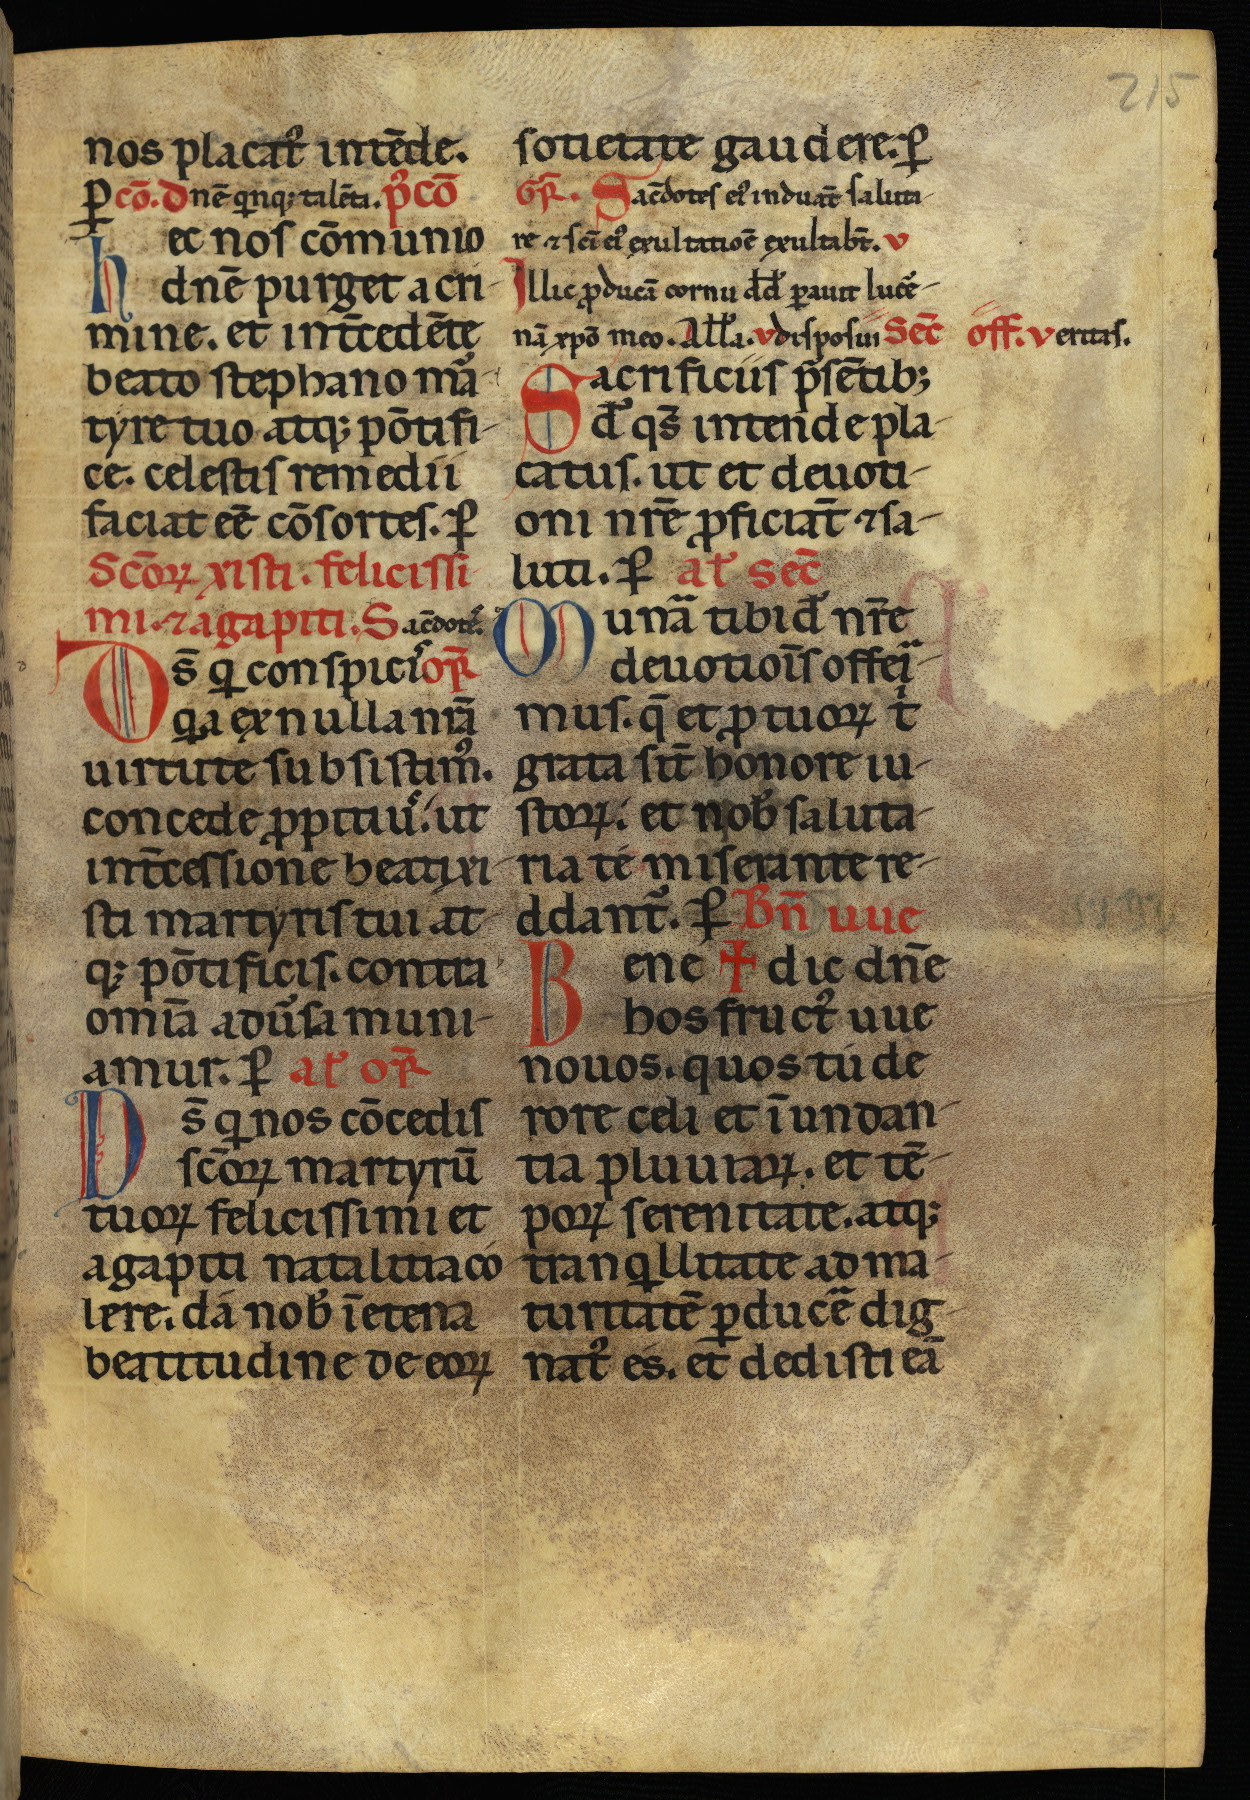 215
nos placat᷒ intēde.
ꝑ cō. Dnē qinqꝫ talēta. p᷒cō
hec nos cōmunio
dnē purget a cri-
mine. et int̄cedēte
beato stephano mar-
tyre tuo atqꝫ pōtifi-
ce. celestis remedii
faciat eē cōsortes. ꝑ
Scōꝝ xisti. felicissi
mi. ⁊ agapiti. Sac̄dotes.
Ds̄ qi conspicis or̄
qia ex nulla nr̄a
uirtute subsistim᷒.
concede ꝓpitius. ut
int̄cessione beati xi-
sti martyris tui at-
qꝫ pōtificis. contra
om̄ia aduersa muni-
amur. ꝑ al' or̄
Ds̄ qi nos cōcedis
scōꝝ martyrū
tuoꝝ felicissimi et
agapiti natalitia co
lere. da nob' ī eterna
beatitudine de eoꝝ
sotietate gaudere. ꝑ
Gr̄. Sac̄dotes ei᷒ induāt saluta-
re ⁊ sc̄i ei᷒ exultatiōe exultabt̄. v
Illic ꝓducā cornu dd' parauit lucer-
nā xp̄o meo. All'a. v disposui Sec̄ off. Veritas.
Sacrificiis p̄sētibꝫ
d' qs̄ intende pla-
catus. ut et deuoti-
oni nr̄e ꝓficiāt ⁊ sa-
luti. ꝑ al' sec̄
Munera tibi d' nr̄e
deuotiōis offeri-
mus. q̄ et ꝓ tuoꝝ t'
grata sīt honore iu-
stoꝝ. et nob' saluta-
ria te miserante re-
ddant᷒. ꝑ Bn̄ uue
Bene ✝ dic dn̄e
hos fruct᷒ uue
nouos. quos tu de
rore celi et īundan-
tia pluuiaꝝ. et tē-
poꝝ serenitate. atqꝫ
tranqillitate ad ma-
turitatē ꝑducere dig-
nat᷒ es. et dedisti eā